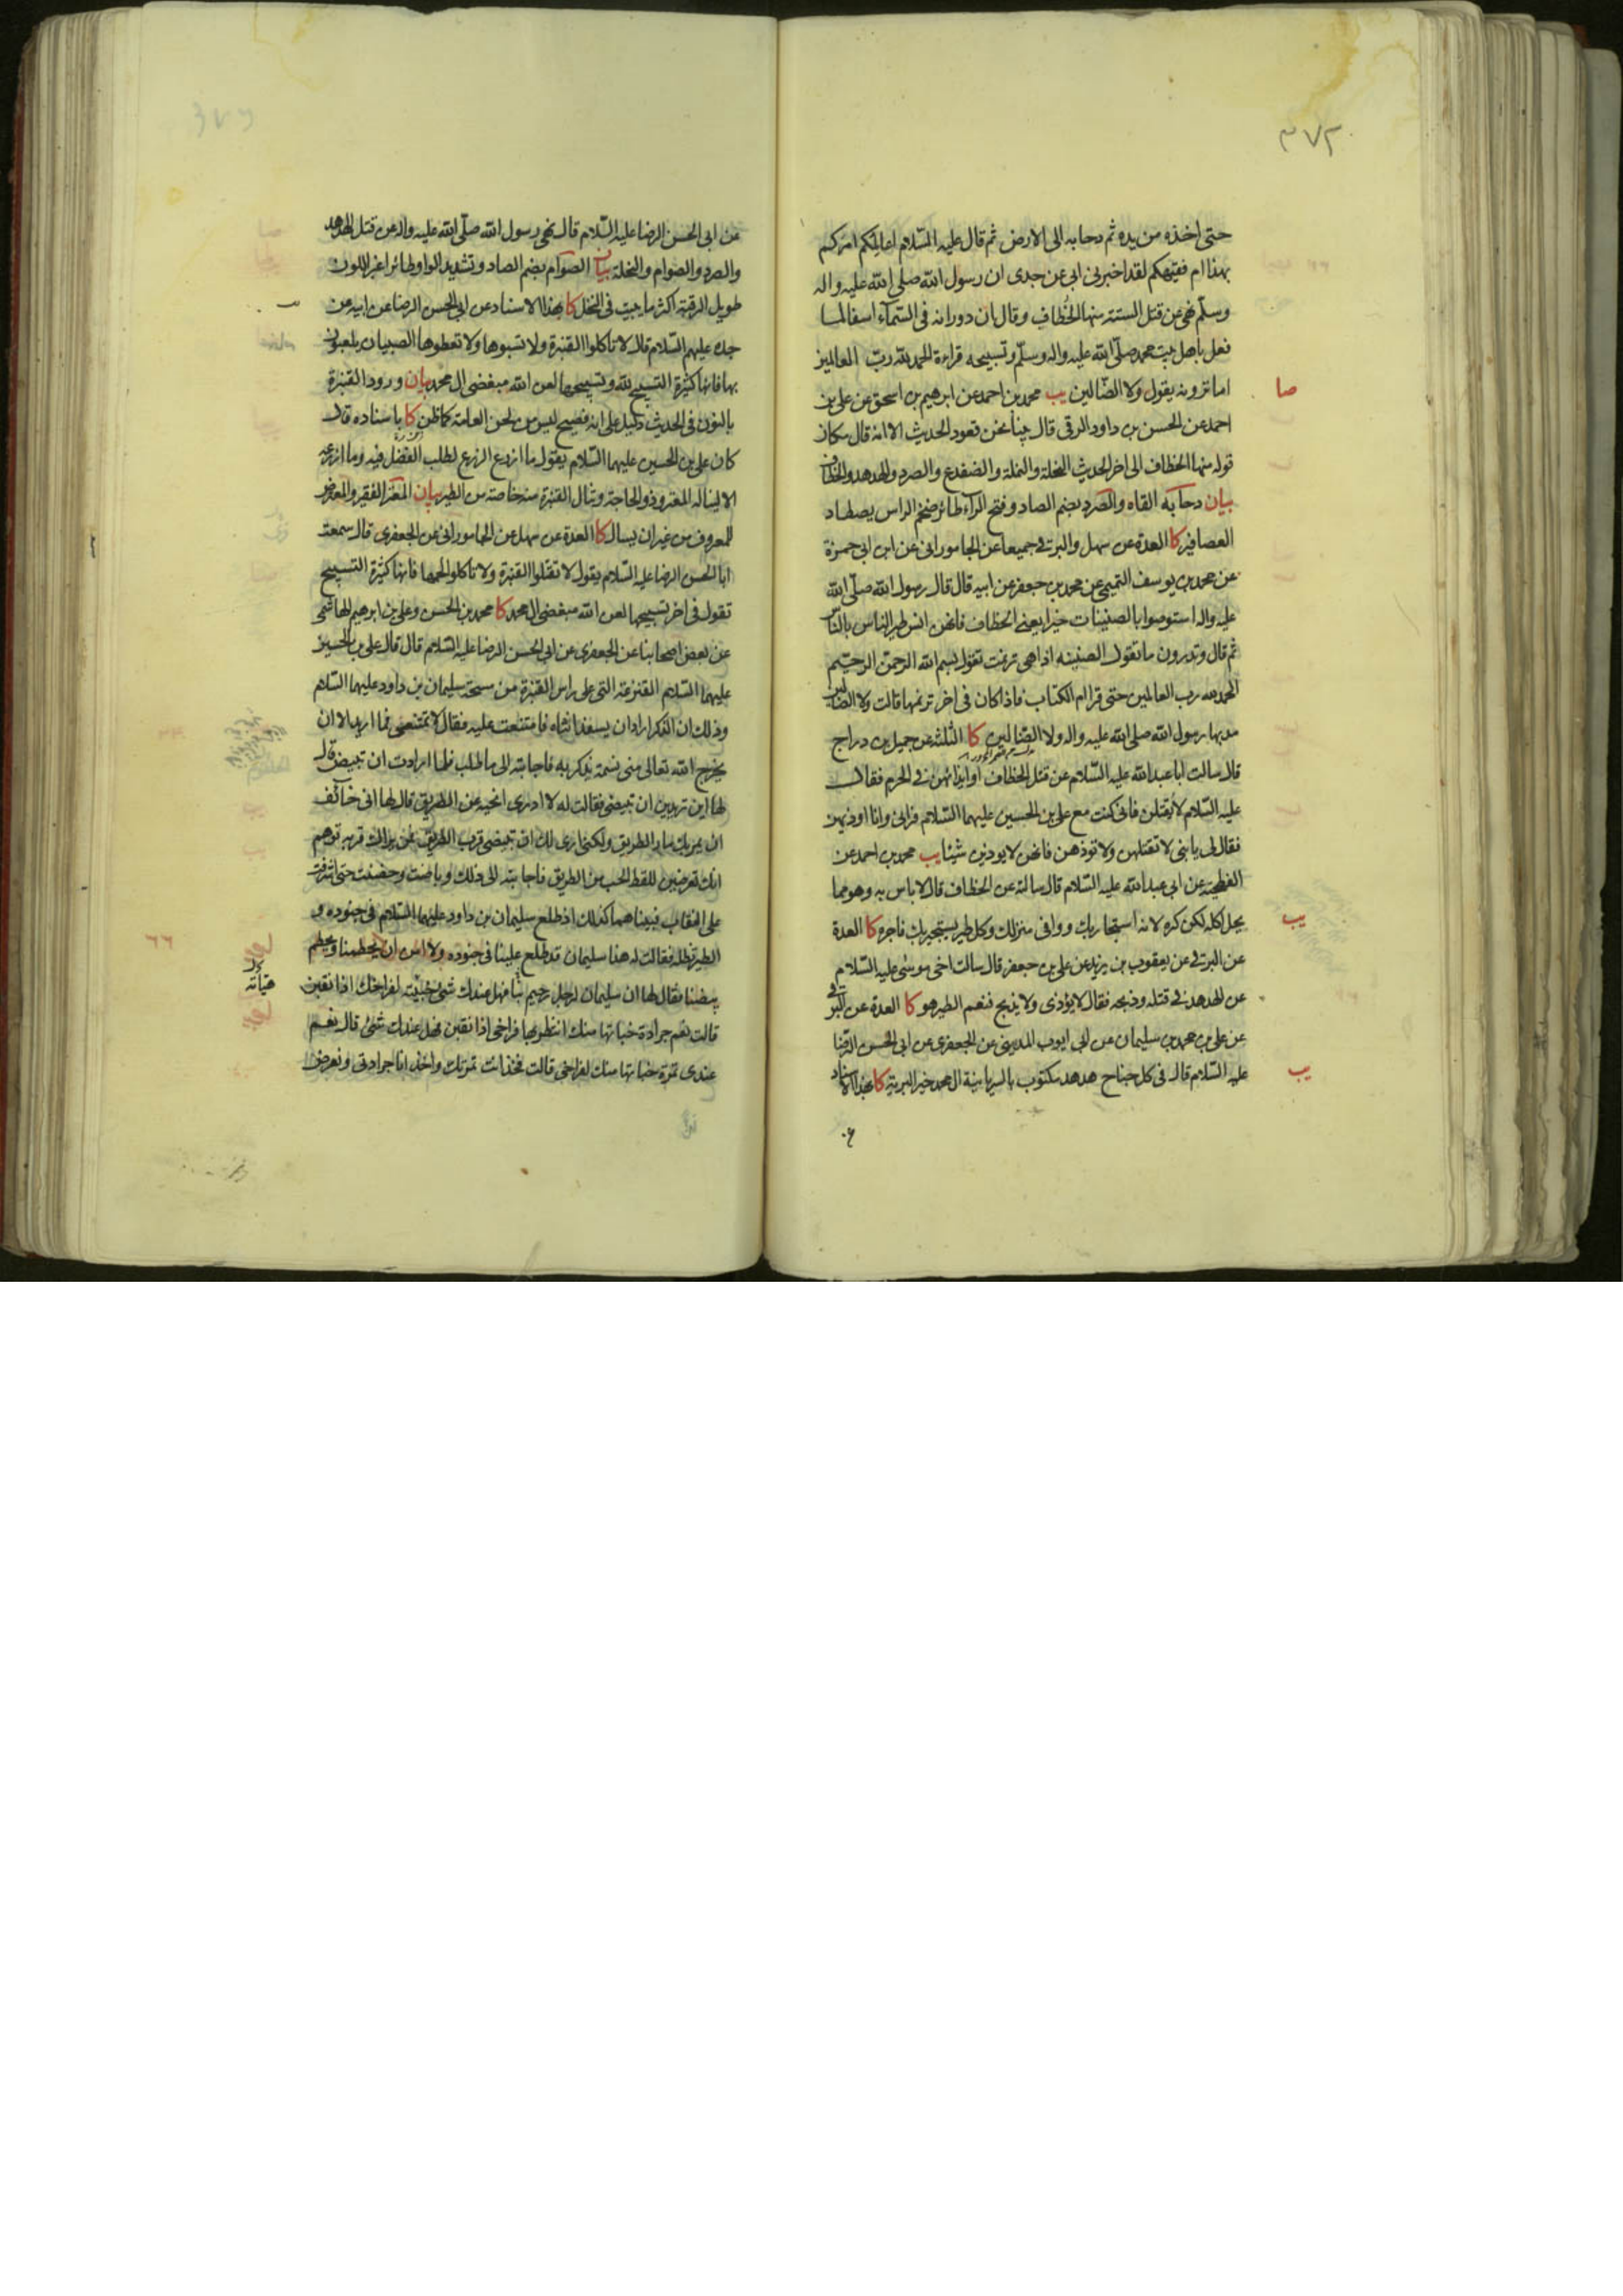 ٣٧٢
حتى اخذه من يده ثم دحا به الى الارض ثم قال عليه السّلام اعالمكم امركم
بهذا ام فقيهكم لقد اخبرنى ابى عن جدى ان رسول الله صلى الله عليه واله
وسلّم نهى عن قتل الستة منها الخُطّاف وقال ان دورانه فى السّماء اسفا لما
فعل باهل بيت محمد صلّى الله عليه واله وسلّم وتسبيحه قراءة الحمد لله ربّ العالمين
صا
اما ترونه يقول ولا الضّالين يب محمد بن احمد عن ابرهيم بن اسحق عن على بن
احمد عن الحسن بن داود الرقى قال بينا نحن قعود الحديث الا انه قال مكان
قوله منها الخطاف الى اخر الحديث النحلة والنملة والضفدع والصرد والهدهد والخطاف
بيان دحا به القاه والصرد بضم الصاد وفتح الراء طائر ضخم الراس يصطاد
العصافير كا العدة عن سهل والبرقى جميعا عن الجامورانى عن ابن ابى حمزة
عن محمد بن يوسف التميمى عن محمد بن جعفر عن ابيه قال قال رسول الله صلّى الله
عليه واله استوصوا بالصنينات خيرا يعنى الخطاف فانهن انس طير الناس بالناس
ثم قال وتدرون ما تقول الصنينه اذا هى ترنمت تقول بسم الله الرحمن الرحيم
الحمد لله رب العالمين حتى قرا ام الكتاب فاذا كان فى اخر ترنمها قالت ولا الضالين
مد بها رسول الله صلى الله عليه واله ولا الضّالين كا الثلثة عن جميل بن دراج
قال سالت ابا عبد الله عليه السّلام عن قتل الخطاف او ايذائهن فى الحرم فقال
عليه السّلام لا يقتلن فانى كنت مع على بن الحسين عليهما السّلام فرانى وانا اوذيهن
فقال لى يا بنى لا تقتلهن ولا تؤذهن فانهن لا يوذين شيئا يب محمد بن احمد عن
الفطحية عن ابى عبد الله عليه السّلام قال سالته عن الخطاف قال لا باس به وهو مما
يب
يحل اكله لكن كره لانه استجار بك ووافى منزلك وكل طير يستجير بك فاجره كا العدة
عن البرقى عن يعقوب بن يزيد عن على بن جعفر قال سالت اخى موسى عليه السّلام
عن الهدهد فى قتله وذبحه فقال لا يؤذى ولا يذبح فنعم الطير هو كا العدة عن البرقى
عن على بن محمد بن سليمان عن ابى ايوب المدينى عن الجعفرى عن ابى الحسن الرضا
يب
عليه السّلام قال فى كل جناح هدهد مكتوب بالسريانية ال محمد خير البرية كا بهذا الاسناد
عن ابى الحسن الرضا عليه السّلام قال نهى رسول الله صلّى الله عليه واله عن قتل الهدهد
والصرد والصوام والنحلة بيان الصوام بضم الصاد وتشديد الواو طائر اغبر اللون
طويل الرقبة اكثر ما يبيت فى النخل كا بهذا الاسناد عن ابى الحسن الرضا عن ابيه عن
جده عليهم السّلام قال لا تاكلوا القنبرة ولا تسبوها ولا تعطوها الصبيان يلعبون
بها فانها كثيرة التسبيح لله وتسبيحها لعن الله مبغضى ال محمد بيان ورود القنبرة
بالنون فى الحديث دليل على انه فصيح ليس من لحن العامة كما ظن كا باسناده قال
كان على بن الحسين عليهما السّلام يقول ما ازرع الزرع لطلب الفضل فيه وما ازرعه
الا ليناله المعتر وذو الحاجة وتنال القنبرة منه خاصة من الطير بيان المعتر الفقير والمعترض
للمعروف من غير ان يسال كا العدة عن سهل عن الجامورانى عن الجعفرى قال سمعت
ابا الحسن الرضا عليه السّلام يقول لا تقتلوا القنبرة ولا تاكلوا لحمها فانها كثيرة التسبيح
تقول فى اخر تسبيحها لعن الله مبغضى ال محمد كا محمد بن الحسن وعلى بن ابرهيم الهاشمى
عن بعض اصحابنا عن الجعفرى عن ابى الحسن الرضا عليه السّلام قال قال على بن الحسين
عليهما السّلام القنزعة التى على راس القنبرة من مسحة سليمان بن داود عليهما السّلام
وذلك ان الذكر اراد ان يسفد انثاه فامتنعت عليه فقال لا تمتنعى فما اريد الا ان
يخرج الله تعالى منى نسمة يذكر به فاجابته الى ما طلب فلما ارادت ان تبيض قال
لها اين تريدين ان تبيضى فقالت له لا ادرى انحيه عن الطريق قال لها انى خائف
ان يمر بك مار الطريق ولكنى ارى لك ان تبيضى قرب الطريق فمن يراك قربه توهم
انك تعرضين للقط الحب من الطريق فاجابته الى ذلك وباضت وحضنت حتى اشرفت
على النقاب فبينا هما كذلك اذ طلع سليمان بن داود عليهما السّلام فى جنوده و
الطير تظله فقالت له هذا سليمان قد طلع علينا فى جنوده ولا امن ان يحطمنا ويحطم
بيضنا فقال لها ان سليمان لرجل رحيم بنا فهل عندك شئ خبيته لفراخك اذا نقبن
قالت نعم جرادة خباتها منك انتظر بها فراخى اذا نقبن فهل عندك شئ قال نعم
عندى تمرة خباتها منك لفراخى قالت فخذ انت تمرتك واخذ انا جرادتى ونعرض